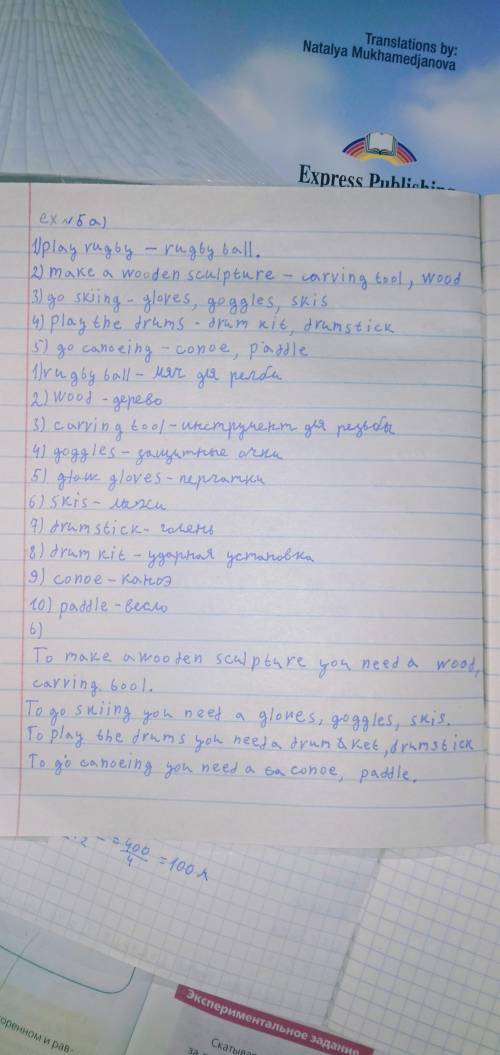 Translations by:
Natalya Mukhamedjanova
Express Publishing
ex №5a)
1) play rugby – rugby ball.
2) make a wooden sculpture – carving tool, wood
3) go skiing – gloves, goggles, skis
4) play the drums - drum kit, drumstick
5) go canoeing – conoe, paddle
1) rugby ball – мяч для регби
2) wood - дерево
3) carving tool – инструмент для резьбы
4) goggles – защитные очки
5) gloves – перчатки
6) skis – лыжи
7) drumstick – голень
8) drum kit – ударная установка
9) conoe – каноэ
10) paddle – весло
б)
To make a wooden sculpture you need a wood,
carving tool.
To go skiing you need a gloves, goggles, skis.
To play the drums you need a drum ket, drumstick
To go canoeing you need a conoe, paddle.
= 400/4 = 100
Экспериментальное задание
Скатывая
торенном и рав-